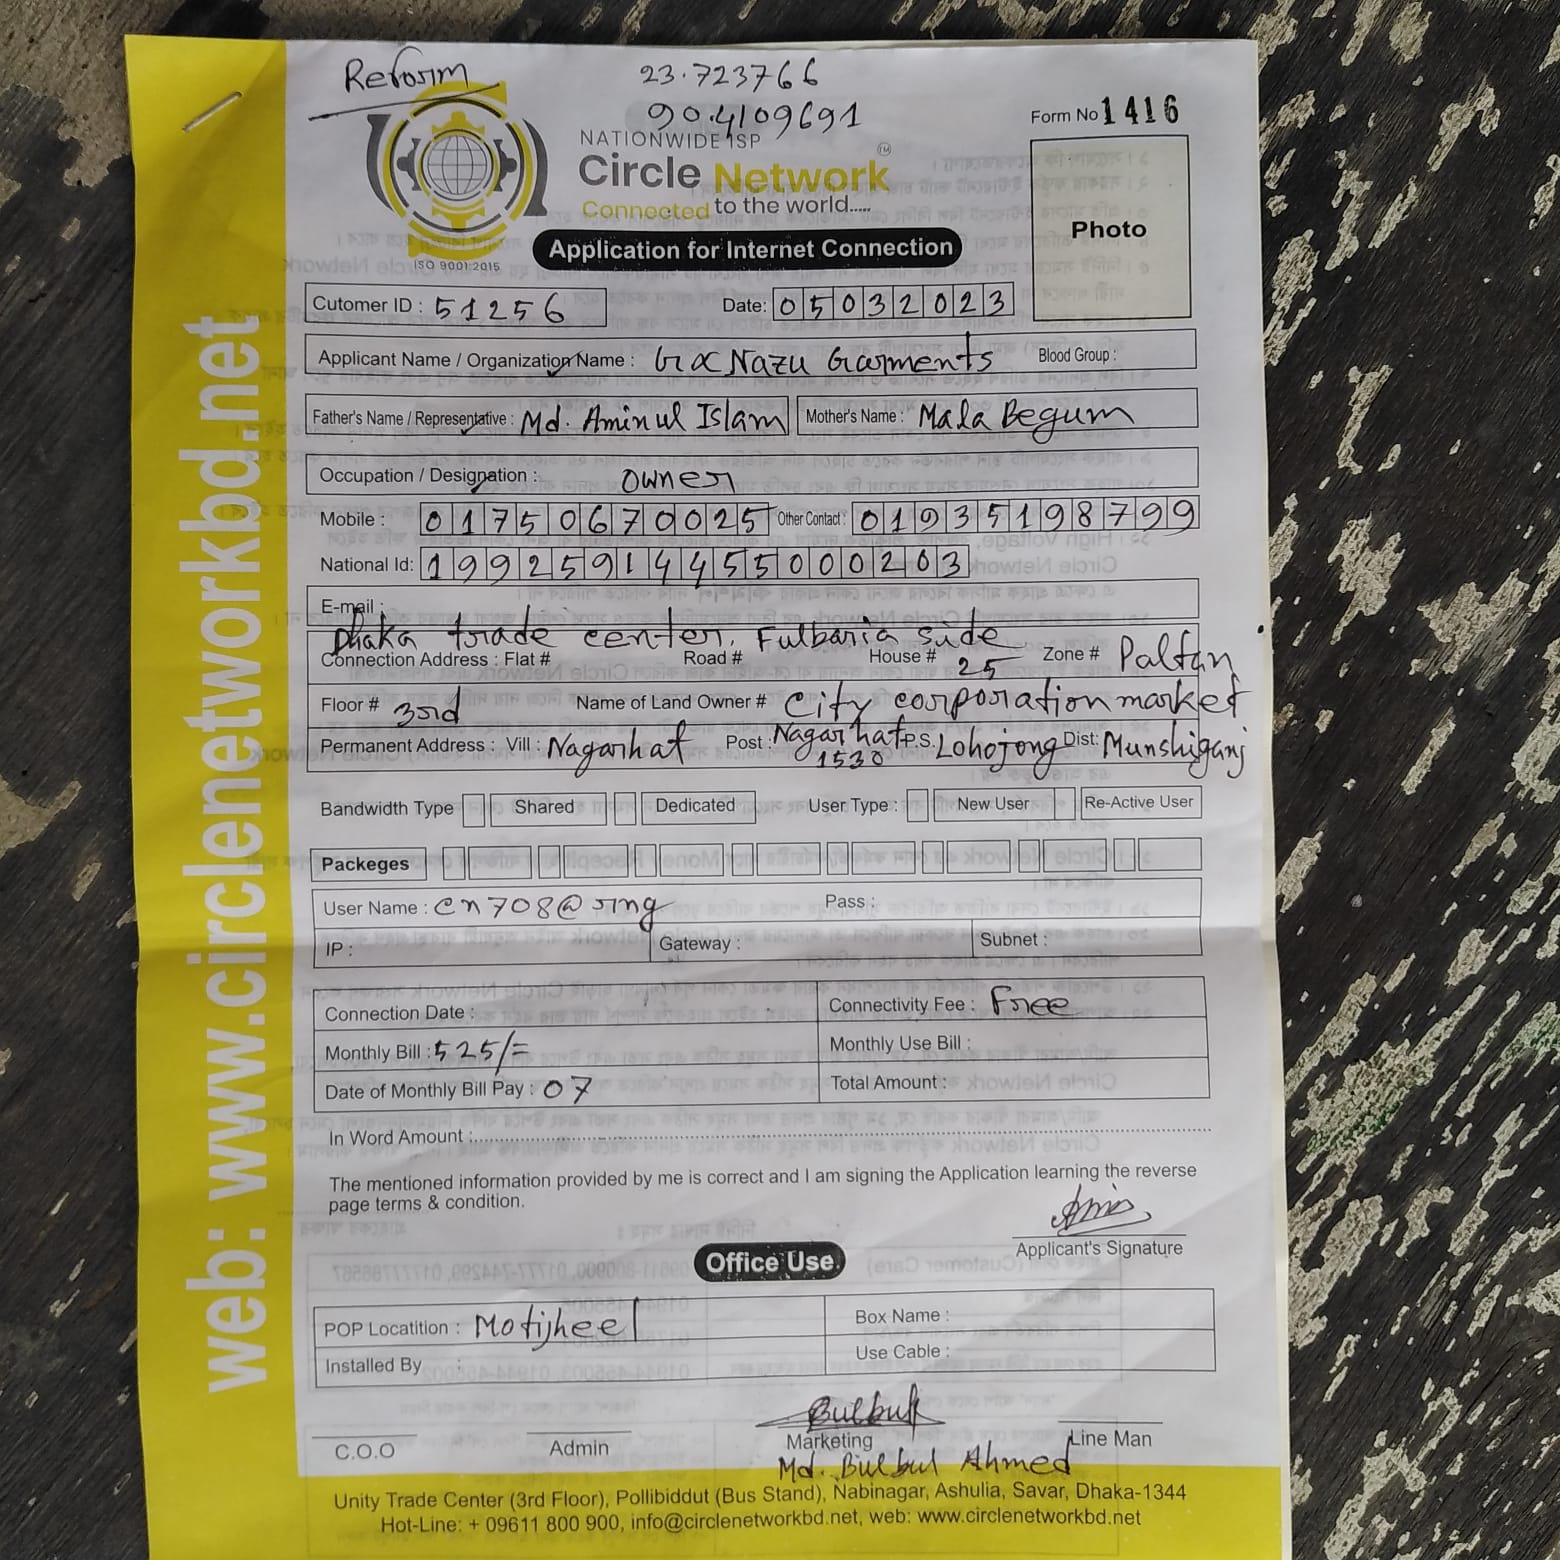 Reform
23.723766
90.4109691
Form No 1416
NATIONWIDE ISP
Circle Network TM
Connected to the world.....
ISO 9001:2015
Photo
Application for Internet Connection
Cutomer ID : 51256
Date: 05032023
Applicant Name / Organization Name : Nazu Garments
Blood Group :
Father's Name / Representative : Md. Aminul Islam
Mother's Name : Mala Begum
Occupation / Designation : Owner
Mobile : 01750670025
Other Contact : 01935198799
National Id: 19925914455000203
E-mail :
Dhaka trade center, Fulbaria side
Connection Address : Flat # Road # House # 25 Zone # Paltan
Floor # 3rd Name of Land Owner # City corporation market
Permanent Address : Vill : Nagarhat Post : Nagarhat 1530 P.S. Lohojong Dist: Munshiganj
Bandwidth Type Shared Dedicated User Type : New User Re-Active User
Packeges
User Name : cn708@rng Pass :
IP : Gateway : Subnet :
Connection Date : Connectivity Fee : Free
Monthly Bill : 525/= Monthly Use Bill :
Date of Monthly Bill Pay : 07 Total Amount :
In Word Amount :
The mentioned information provided by me is correct and I am signing the Application learning the reverse
page terms & condition.
Amin
Applicant's Signature
Office Use
POP Locatition : Motijheel Box Name :
Installed By : Use Cable :
Bulbul
C.O.O Admin Marketing Line Man
Md. Bulbul Ahmed
Unity Trade Center (3rd Floor), Pollibiddut (Bus Stand), Nabinagar, Ashulia, Savar, Dhaka-1344
Hot-Line: + 09611 800 900, info@circlenetworkbd.net, web: www.circlenetworkbd.net
web: www.circlenetworkbd.net